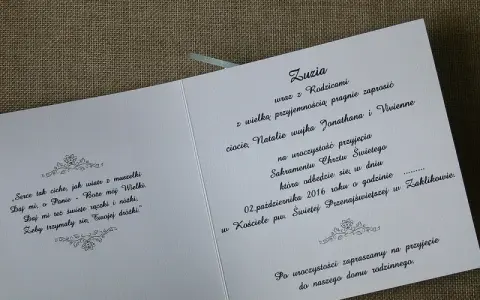 „Serce tak ciche, jak wiatr z muszelki
Daj mi, o Panie - Boże mój Wielki.
Daj mi też święte rączki i nóżki,
Żeby trzymały się Twojej dróżki."
Zuzia
wraz z Rodzicami
z wielką przyjemnością pragnie zaprosić
ciocię Natalie wujka Jonathana i Vivienne
na uroczystość przyjęcia
Sakramentu Chrztu Świętego
która odbędzie się w dniu
02.października 2016 roku o godzinie ........
w Kościele pw. Świętej Przenajświętszej w Zaklikowie.
Po uroczystości zapraszamy na przyjęcie
do naszego domu rodzinnego.